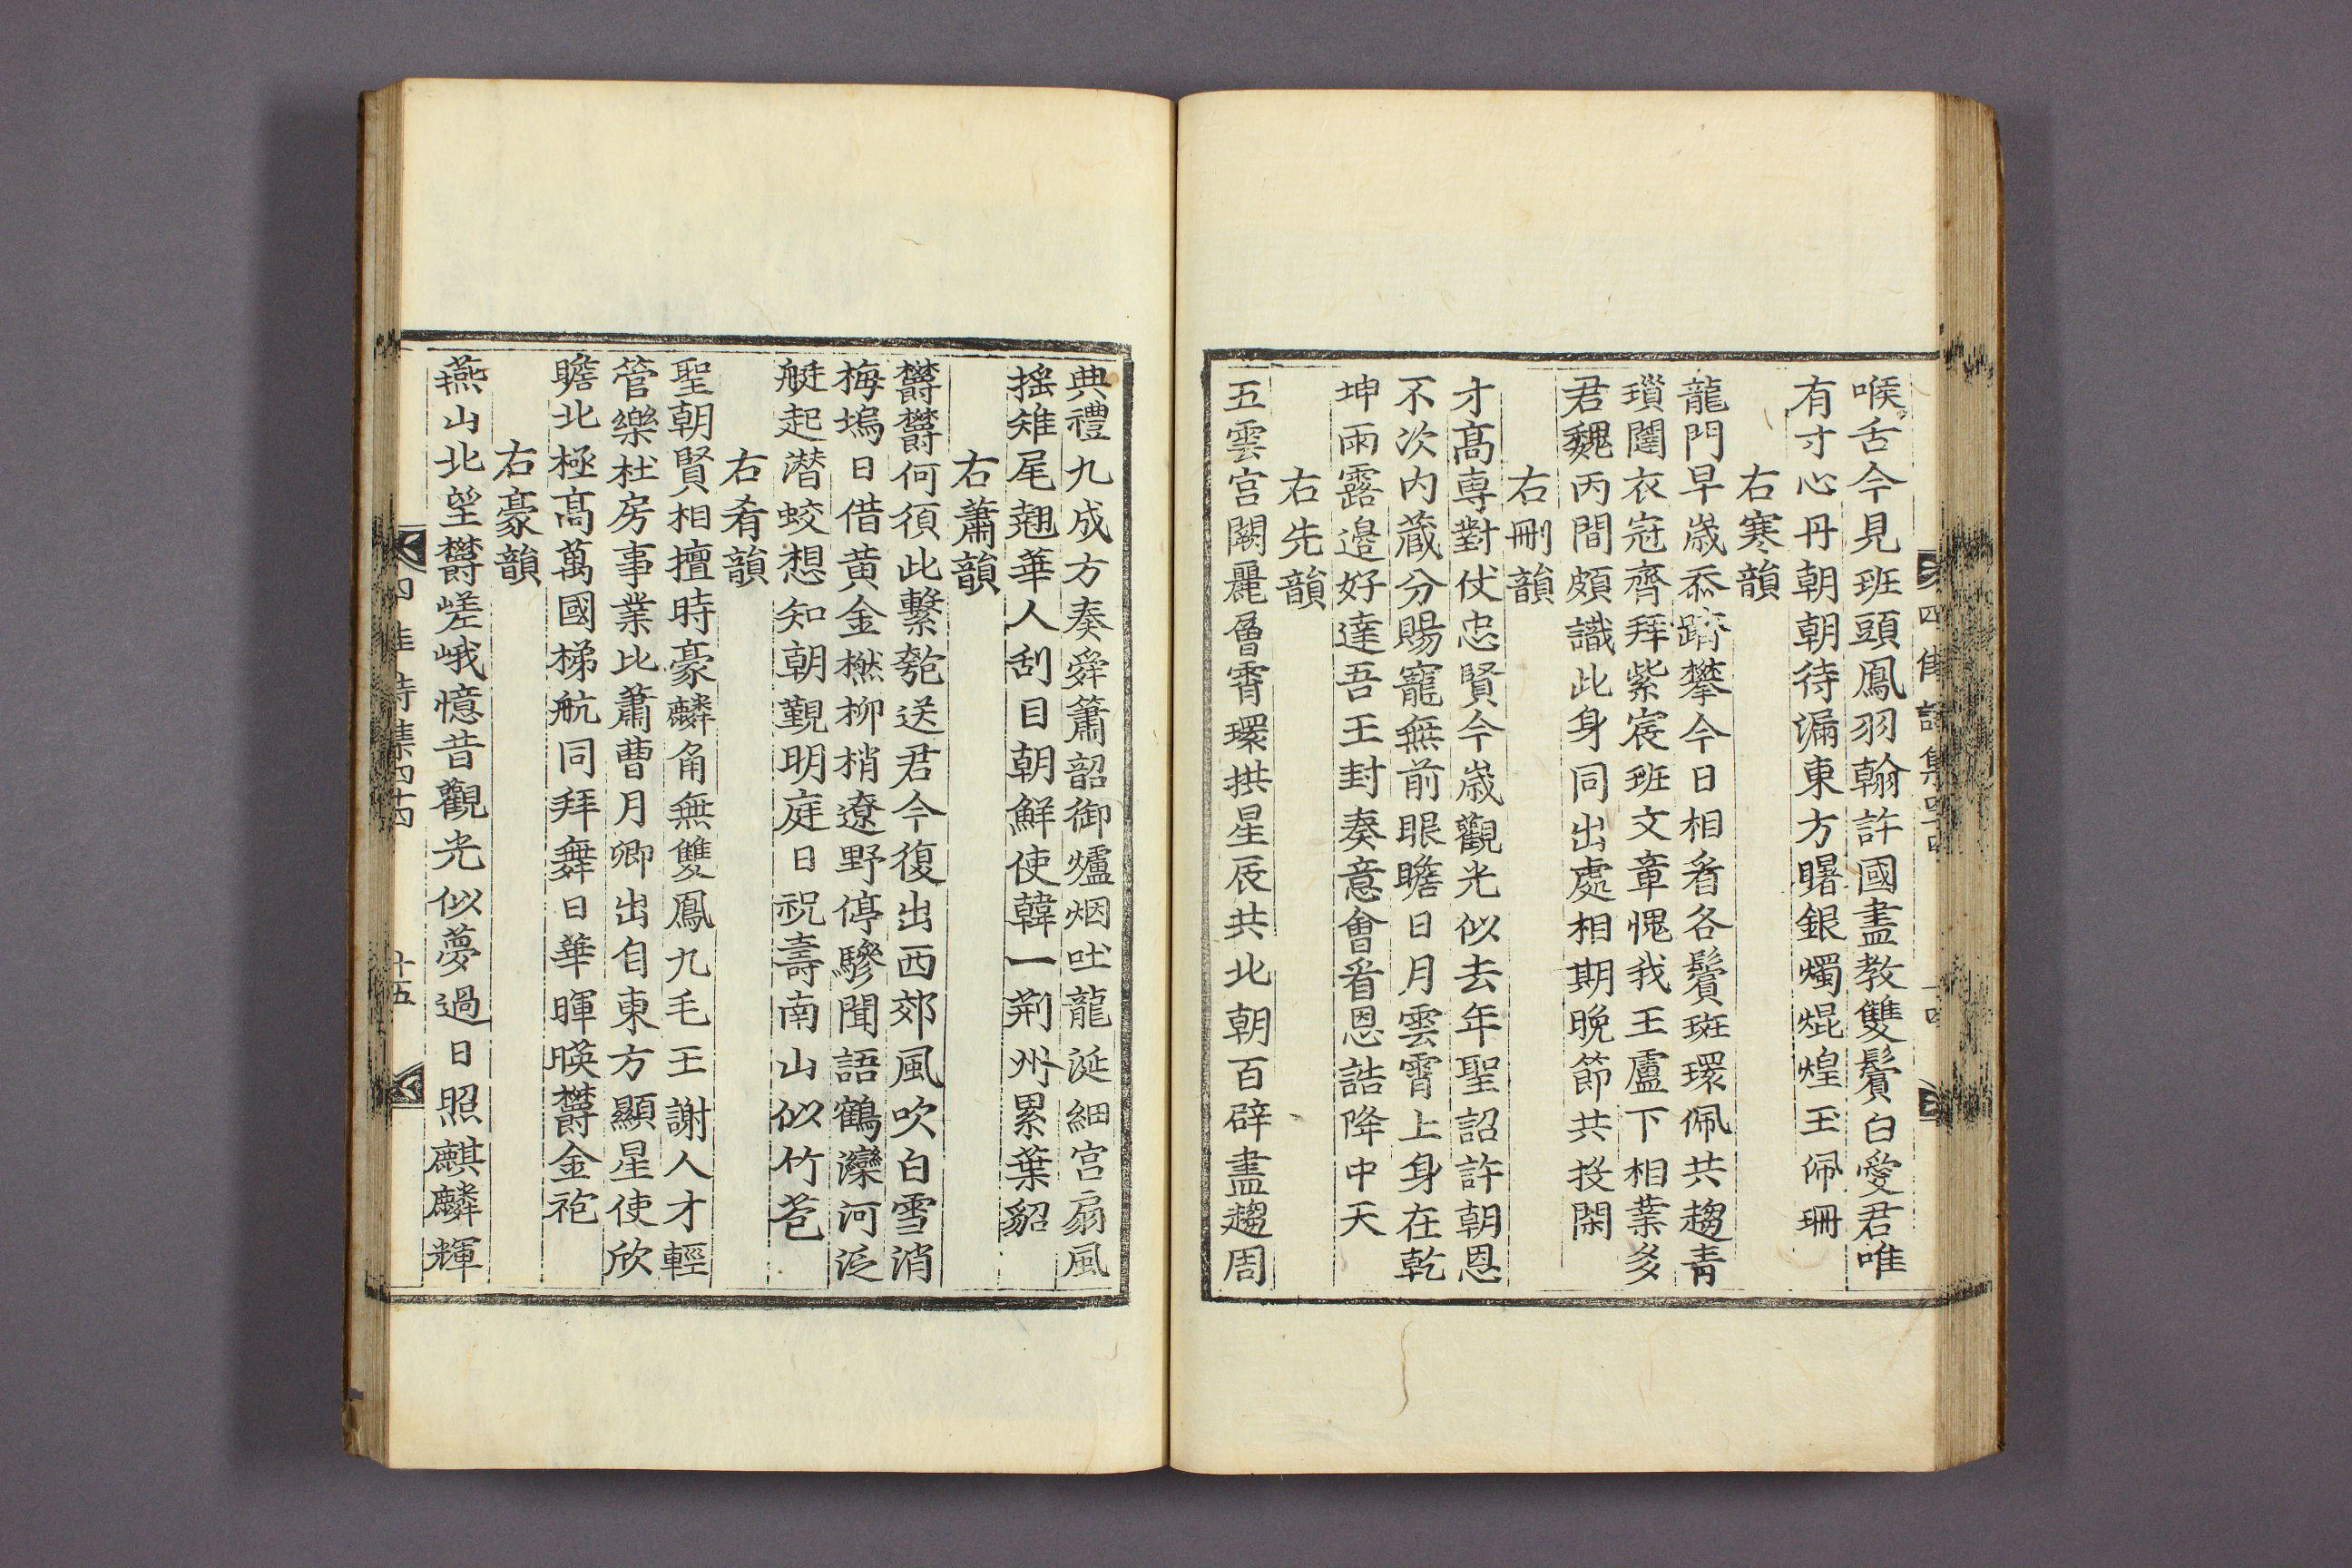 四佳詩集四十四
十四
喉舌今見班頭鳳羽翰許國盡教雙鬢白愛君唯
有寸心丹朝朝待漏東方曙銀燭焜煌玉佩珊
右寒韻
龍門早歲忝躋攀今日相看各鬢斑環佩共趨青
瑣闥衣冠齊拜紫宸班文章愧我王盧下相業多
君魏丙間頗識此身同出處相期晚節共投閑
右刪韻
才高專對仗忠賢今歲觀光似去年聖詔許朝恩
不次內藏分賜寵無前眼瞻日月雲霄上身在乾
坤雨露邊好達吾王封奏意會看恩誥降中天
右先韻
五雲宮闕麗層霄環拱星辰共北朝百辟盡趨周
典禮九成方奏舜簫韶御爐烟吐龍涎細宮扇風
搖雉尾翹華人刮目朝鮮使韓一荊州累葉貂
右蕭韻
欝欝何須此繫匏送君今復出西郊風吹白雪消
梅塢日借黃金撚柳梢遼野停驂聞語鶴灤河泛
艇起潛蛟想知朝覲明庭日祝壽南山似竹苞
右肴韻
聖朝賢相擅時豪麟角無雙鳳九毛王謝人才輕
管樂杜房事業比蕭曹月卿出自東方顯星使欣
瞻北極高萬國梯航同拜舞日華暉暎欝金袍
右豪韻
燕山北望欝嵯峨憶昔觀光似夢過日照麒麟輝
四佳詩集四十四
十五